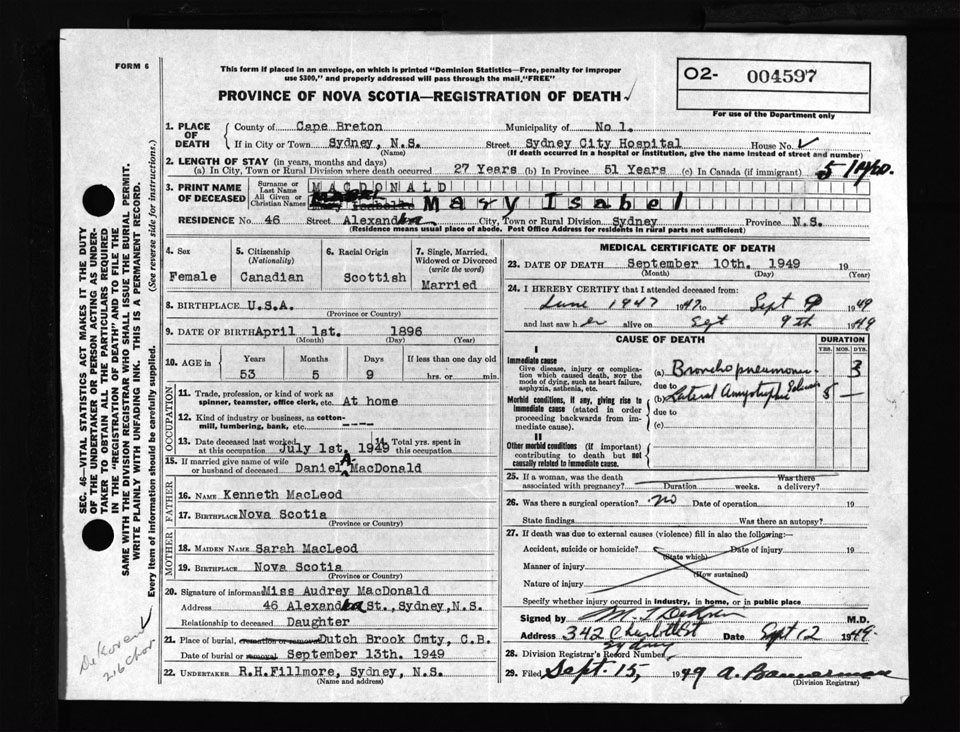 FORM 6
This form if placed in an envelope, on which is printed "Dominion Statistics—Free, penalty for improper
use $300," and properly addressed will pass through the mail "FREE"
PROVINCE OF NOVA SCOTIA—REGISTRATION OF DEATH
O2- 004597
For use of the Department only
1. PLACE OF DEATH
County of Cape Breton Municipality of No 1.
If in City or Town Sydney, N.S. Street Sydney City Hospital House No.
(Name) (If death occurred in a hospital or institution, give the name instead of street and number)
2. LENGTH OF STAY (in years, months and days)
(a) In City, Town or Rural Division where death occurred 27 Years (b) In Province 51 Years (c) In Canada (if immigrant)
3. PRINT NAME OF DECEASED
Surname or Last Name MACDONALD
All Given or Christian Names Mary Isabel
RESIDENCE No. 46 Street Alexandra City, Town or Rural Division Sydney Province N.S.
(Residence means usual place of abode. Post Office Address for residents in rural parts not sufficient)
4. Sex Female
5. Citizenship (Nationality) Canadian
6. Racial Origin Scottish
7. Single, Married, Widowed or Divorced (write the word) Married
8. BIRTHPLACE U.S.A.
(Province or Country)
9. DATE OF BIRTH April 1st. 1896
(Month) (Day) (Year)
10. AGE in Years Months Days If less than one day old
53 5 9 hrs. or min.
OCCUPATION
11. Trade, profession, or kind of work as
spinner, teamster, office clerk, etc. At home
12. Kind of industry or business, as cotton-
mill, lumbering, bank, etc. ----
13. Date deceased last worked at this occupation July 1st, 1949 14. Total yrs. spent in this occupation
15. If married give name of wife
or husband of deceased Daniel A. MacDonald
FATHER
16. NAME Kenneth MacLeod
17. BIRTHPLACE Nova Scotia
(Province or Country)
MOTHER
18. MAIDEN NAME Sarah MacLeod
19. BIRTHPLACE Nova Scotia
(Province or Country)
20. Signature of informant Miss Audrey MacDonald
Address 46 Alexandra St., Sydney, N.S.
Relationship to deceased Daughter
21. Place of burial, cremation or removal Dutch Brook Cmty, C.B.
Date of burial or removal September 13th. 1949
22. UNDERTAKER R.H.Fillmore, Sydney, N.S.
(Name and address)
MEDICAL CERTIFICATE OF DEATH
23. DATE OF DEATH September 10th. 1949 19
(Month) (Day) (Year)
24. I HEREBY CERTIFY that I attended deceased from:
June 1947 1947 to Sept 9 1949
and last saw her alive on Sept 9th 1949
CAUSE OF DEATH DURATION
YRS. MOS. DYS.
I
Immediate cause
Give disease, injury or complica-
tion which caused death, not the
mode of dying, such as heart failure,
asphyxia, asthenia, etc.
(a) Broncho pneumonia 3
due to
Morbid conditions, if any, giving rise to
immediate cause (stated in order
proceeding backwards from im-
mediate cause).
(b) Lateral Amyotrophic Sclerosis 5 —
due to
(c)
II
Other morbid conditions (if important)
contributing to death but not
causally related to immediate cause.
25. If a woman, was the death Was there
associated with pregnancy? Duration weeks. a delivery?
26. Was there a surgical operation? no Date of operation 19
State findings Was there an autopsy?
27. If death was due to external causes (violence) fill in also the following:—
Accident, suicide or homicide? Date of injury 19
(State which)
Manner of injury
(How sustained)
Nature of injury
Specify whether injury occurred in industry, in home, or in public place
Signed by M.D.
Address 342 Charlotte St Date Sept 12 1949
Sydney
28. Division Registrar's Record Number
29. Filed Sept. 15, 1949 A. Bannerman
(Division Registrar)
SEC. 46—VITAL STATISTICS ACT MAKES IT THE DUTY
OF THE UNDERTAKER OR PERSON ACTING AS UNDER-
TAKER TO OBTAIN ALL THE PARTICULARS REQUIRED
IN THE "REGISTRATION OF DEATH" AND TO FILE THE
SAME WITH THE DIVISION REGISTRAR WHO SHALL ISSUE THE BURIAL PERMIT.
WRITE PLAINLY WITH UNFADING INK. THIS IS A PERMANENT RECORD.
Every item of information should be carefully supplied. (See reverse side for instructions.)